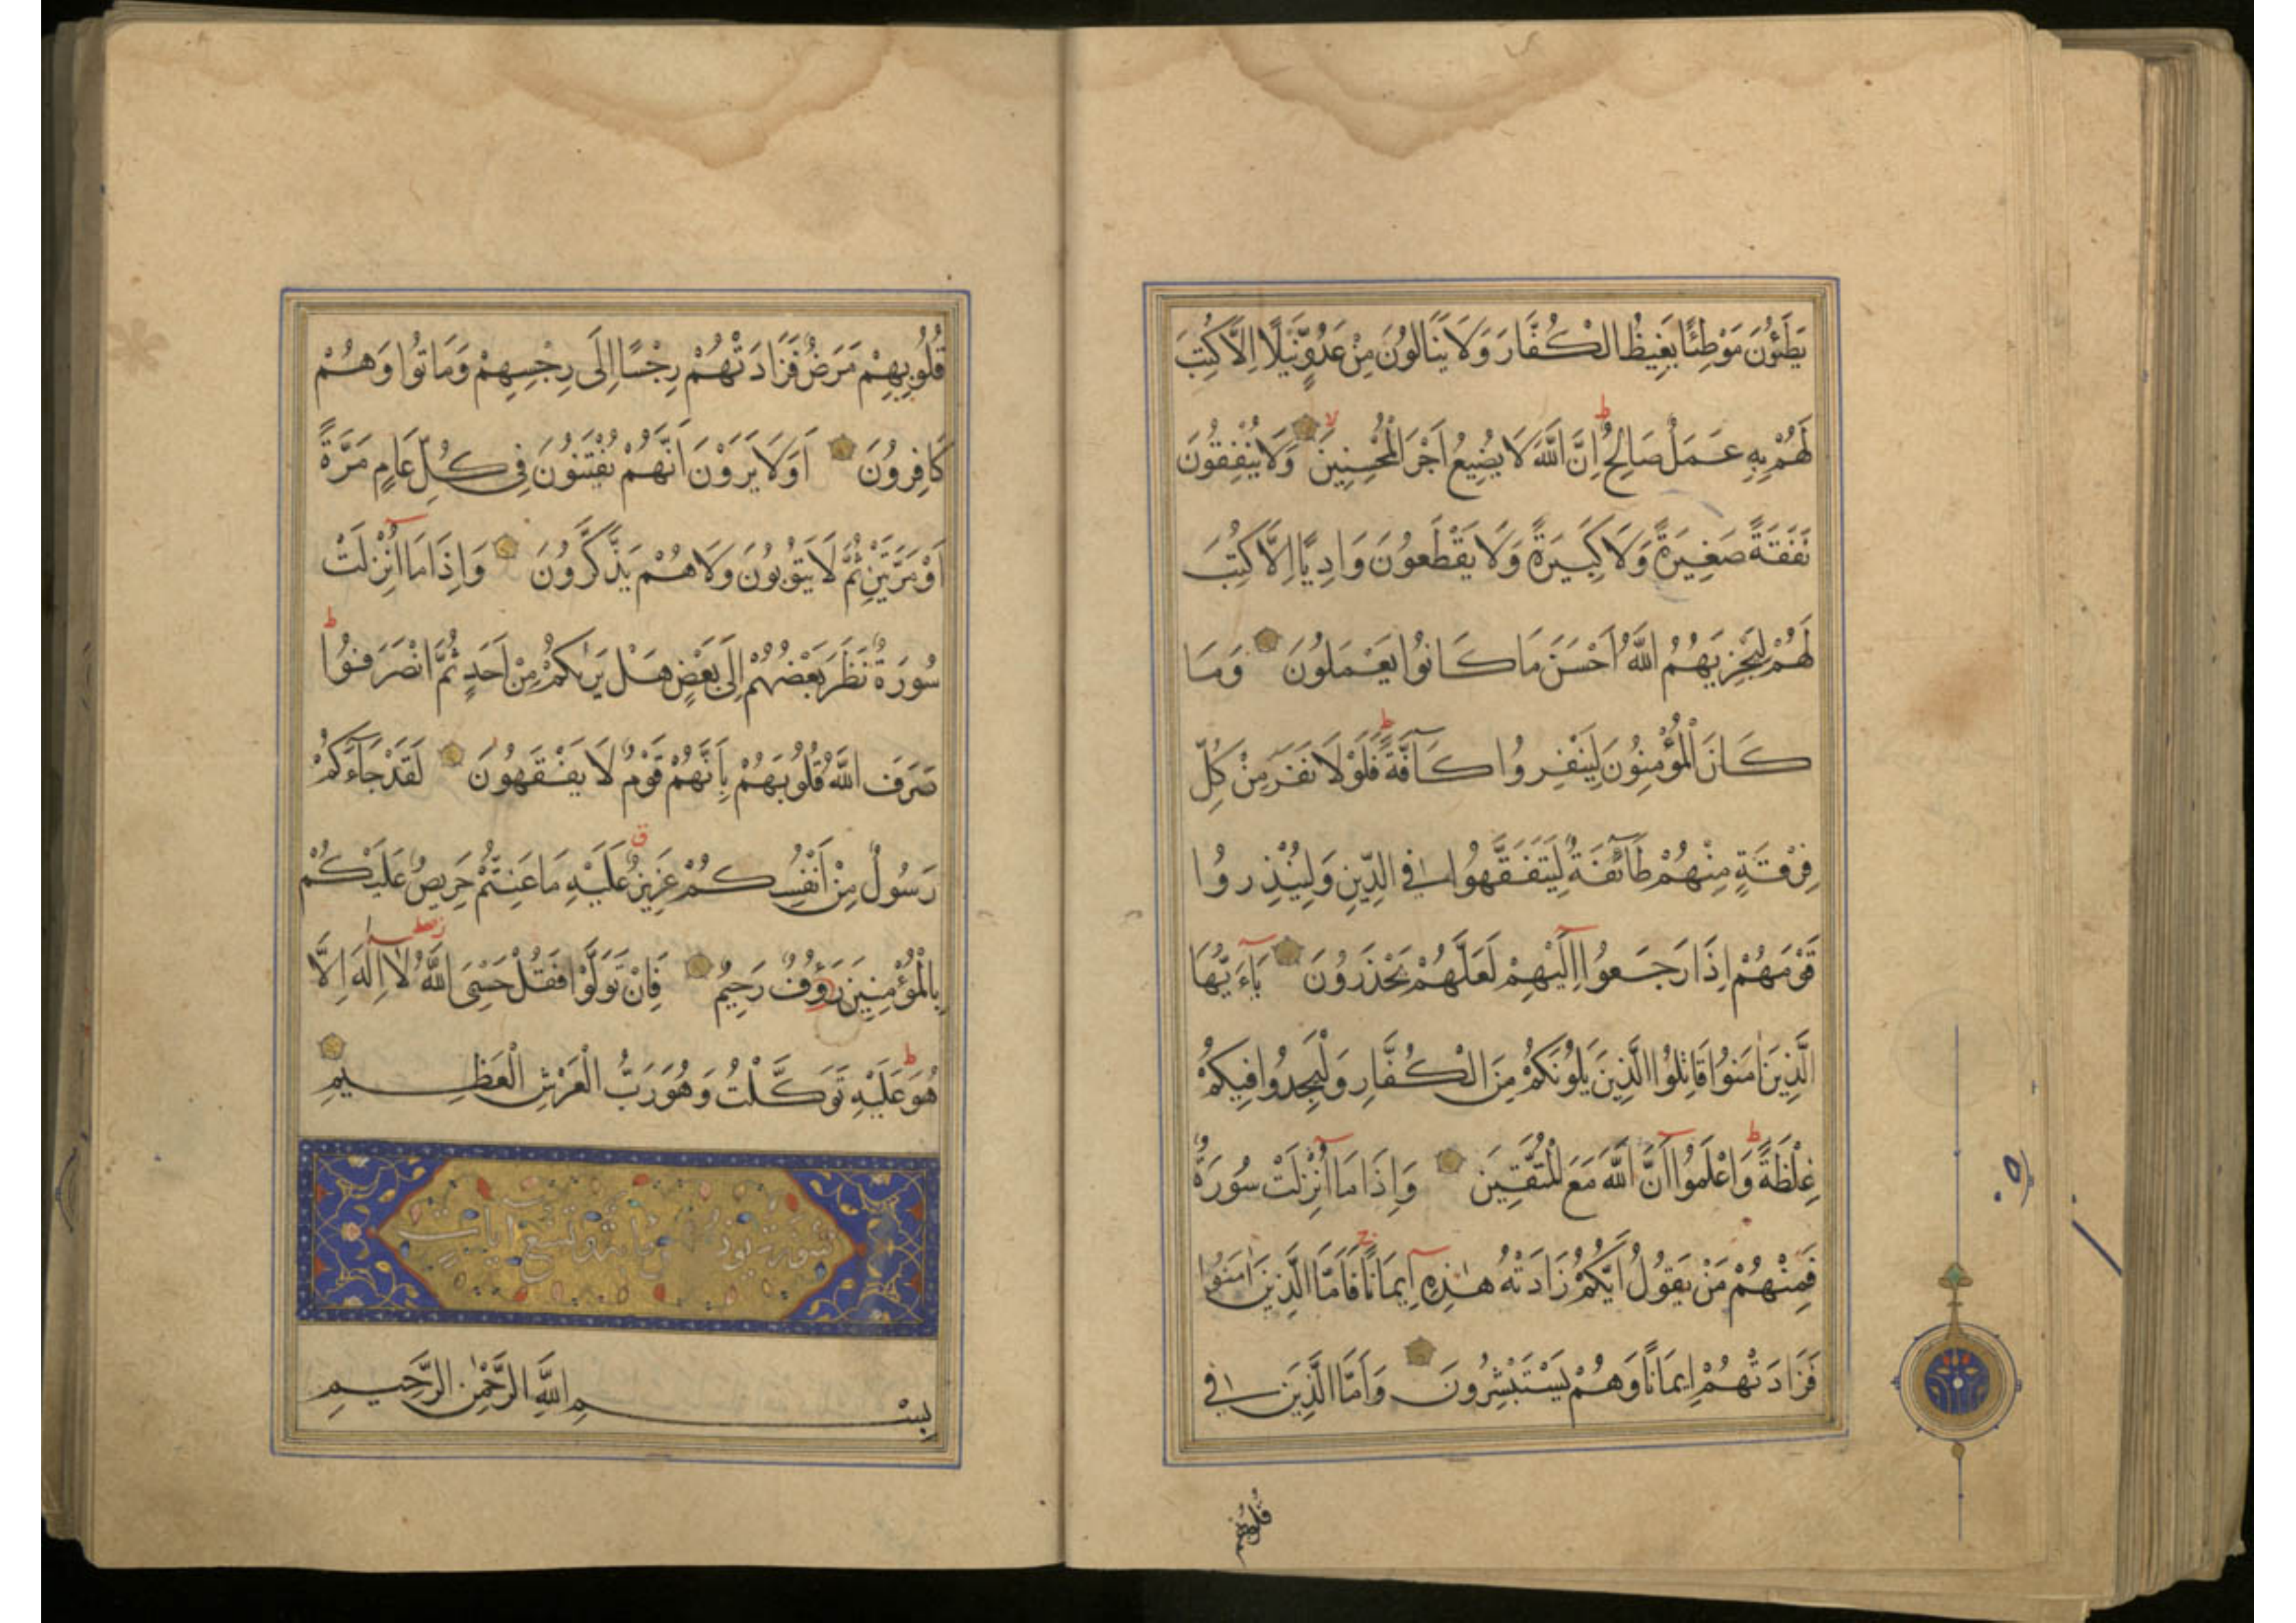 يَطَئُونَ مَوْطِئًا يَغِيظُ الْكُفَّارَ وَلَا يَنَالُونَ مِنْ عَدُوٍّ نَيْلًا اِلَّا كُتِبَ
لَهُمْ بِهِ عَمَلٌ صَالِحٌ اِنَّ اللَّهَ لَا يُضِيعُ اَجْرَ الْمُحْسِنِينَ وَلَا يُنْفِقُونَ
نَفَقَةً صَغِيرَةً وَلَا كَبِيرَةً وَلَا يَقْطَعُونَ وَادِيًا اِلَّا كُتِبَ
لَهُمْ لِيَجْزِيَهُمُ اللَّهُ اَحْسَنَ مَا كَانُوا يَعْمَلُونَ وَمَا
كَانَ الْمُؤْمِنُونَ لِيَنْفِرُوا كَآفَّةً فَلَوْلَا نَفَرَ مِنْ كُلِّ
فِرْقَةٍ مِنْهُمْ طَآئِفَةٌ لِيَتَفَقَّهُوا فِي الدِّينِ وَلِيُنْذِرُوا
قَوْمَهُمْ اِذَا رَجَعُوا اِلَيْهِمْ لَعَلَّهُمْ يَحْذَرُونَ يَآءَيُّهَا
الَّذِينَ اٰمَنُوا قَاتِلُوا الَّذِينَ يَلُونَكُمْ مِنَ الْكُفَّارِ وَلْيَجِدُوا فِيكُمْ
غِلْظَةً وَاعْلَمُوا اَنَّ اللَّهَ مَعَ الْمُتَّقِينَ وَاِذَا مَا اُنْزِلَتْ سُورَةٌ
فَمِنْهُمْ مَنْ يَقُولُ اَيُّكُمْ زَادَتْهُ هٰذِهِ اِيمَانًا فَاَمَّا الَّذِينَ اٰمَنُوا
فَزَادَتْهُمْ اِيمَانًا وَهُمْ يَسْتَبْشِرُونَ وَاَمَّا الَّذِينَ فِي
قلوبهم
قُلُوبِهِمْ مَرَضٌ فَزَادَتْهُمْ رِجْسًا اِلَى رِجْسِهِمْ وَمَاتُوا وَهُمْ
كَافِرُونَ اَوَلَا يَرَوْنَ اَنَّهُمْ يُفْتَنُونَ فِي كُلِّ عَامٍ مَرَّةً
اَوْ مَرَّتَيْنِ ثُمَّ لَا يَتُوبُونَ وَلَا هُمْ يَذَّكَّرُونَ وَاِذَا مَا اُنْزِلَتْ
سُورَةٌ نَظَرَ بَعْضُهُمْ اِلَى بَعْضٍ هَلْ يَرٰىكُمْ مِنْ اَحَدٍ ثُمَّ انْصَرَفُوا
صَرَفَ اللَّهُ قُلُوبَهُمْ بِاَنَّهُمْ قَوْمٌ لَا يَفْقَهُونَ لَقَدْ جَآءَكُمْ
رَسُولٌ مِنْ اَنْفُسِكُمْ عَزِيزٌ عَلَيْهِ مَا عَنِتُّمْ حَرِيصٌ عَلَيْكُمْ
بِالْمُؤْمِنِينَ رَؤُفٌ رَحِيمٌ فَاِنْ تَوَلَّوْا فَقُلْ حَسْبِيَ اللَّهُ لَا اِلٰهَ اِلَّا
هُوَ عَلَيْهِ تَوَكَّلْتُ وَهُوَ رَبُّ الْعَرْشِ الْعَظِيمِ
سورة يونس مائة وتسع آيات
بِسْمِ اللَّهِ الرَّحْمٰنِ الرَّحِيمِ